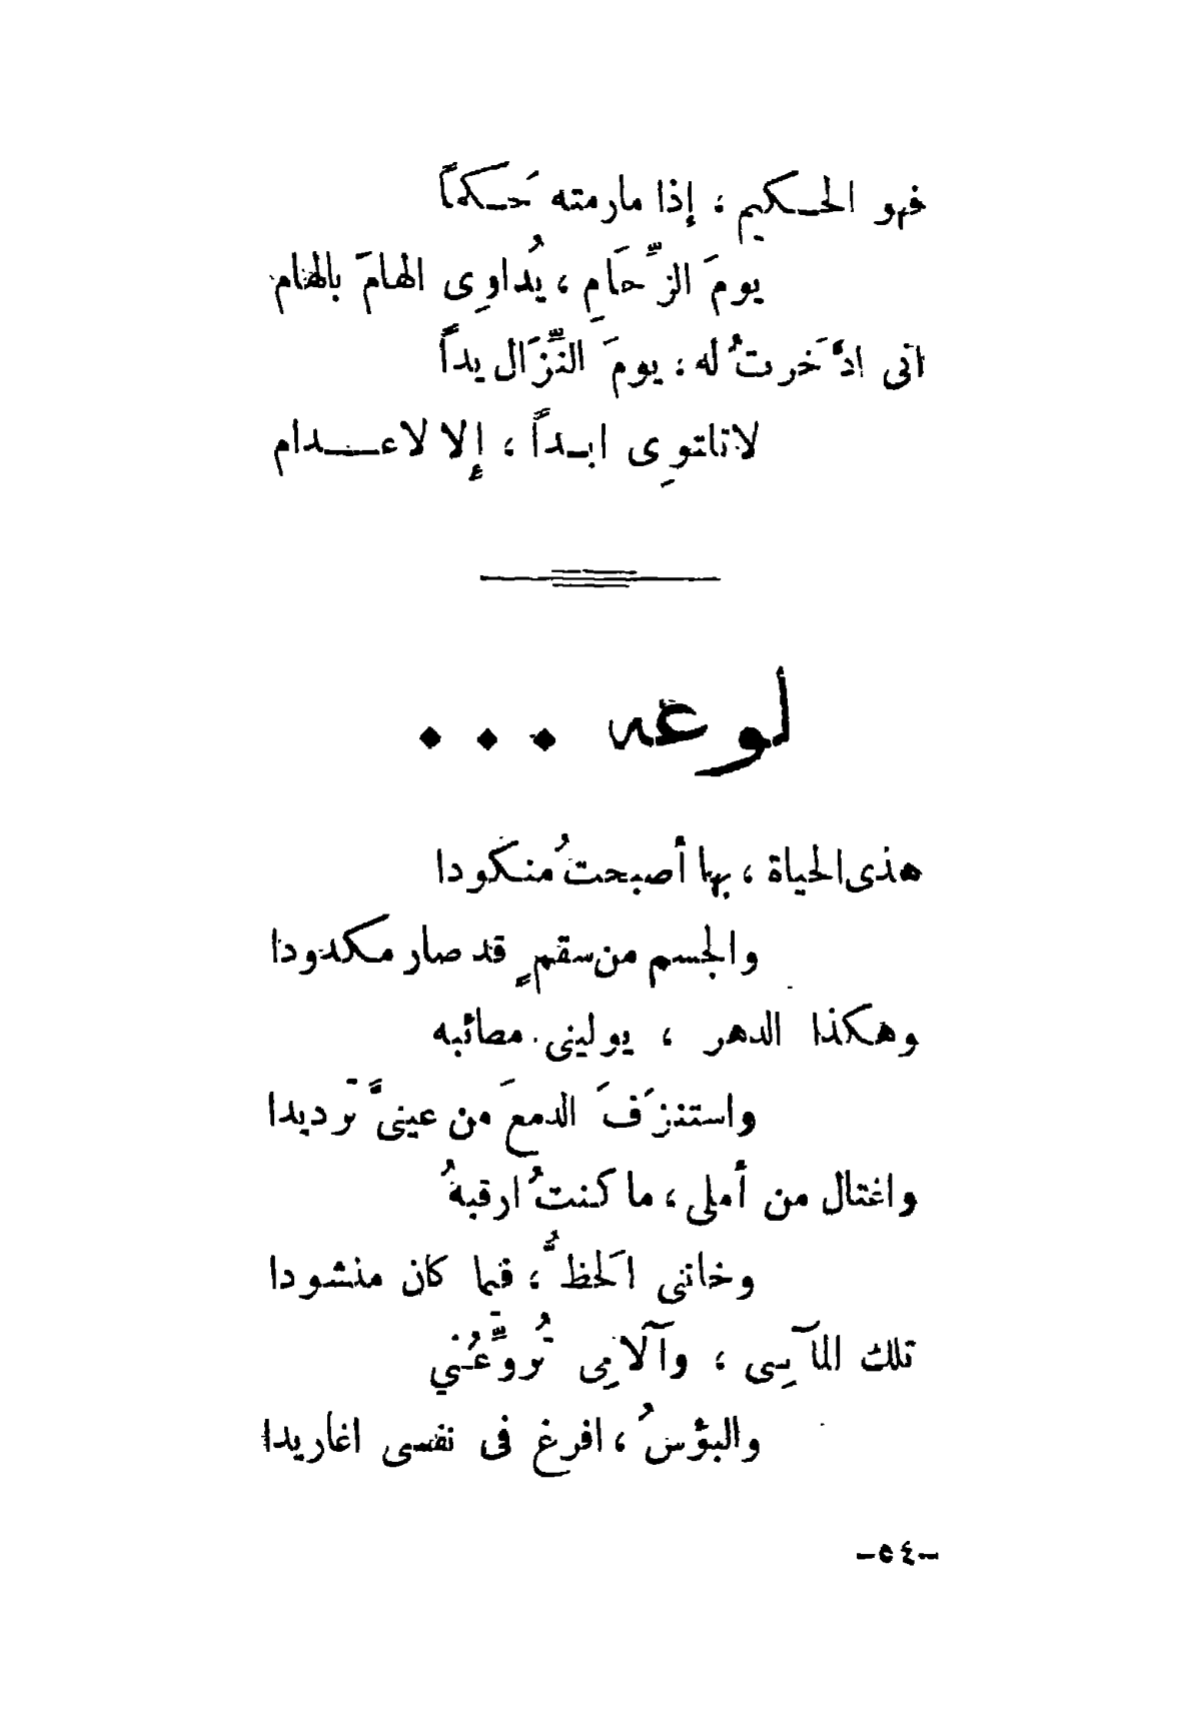 فهو الحكيم ، إذا مارمته حَكماً
يومَ الزِّحَامِ ، يُداوِى الهامَ بالهام
انى ادَّخرتُ له ، يومَ النِّزَال يداً
لاتلتوِى ابداً ، إلا لاعدام
لوعه ...
هذى الحياة ، بها أصبحتُ منكودا
والجسم من سقمٍ قد صار مكدودا
وهكذا الدهر ، يولينى مصائبه
واستنزَفَ الدمعَ من عينىَّ ترديدا
واغتال من أملى ، ما كنتُ ارقبهُ
وخاننى الَحظُّ ، فيما كان منشودا
تلك المآسِى ، وآلامِى تُروِّعُني
والبؤسُ ، افرغ فى نفسى اغاريدا
-٥٤-